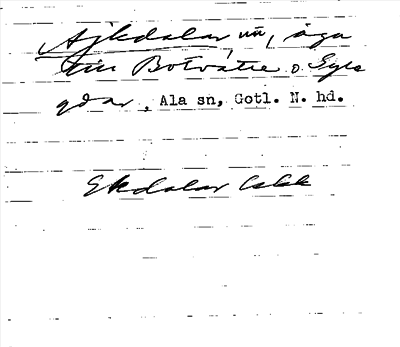 Ajkdalar, nä, äga
till Botvatte o. Syss
gdar, Ala sn, Gotl. N. hd.
Ekdalar Cskk